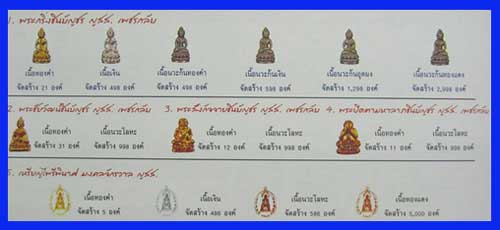 1. พระกริ่งชินบัญชร ญสส. เพชรกลับ
เนื้อทองคำ เนื้อเงิน เนื้อนวะก้นทองคำ เนื้อนวะก้นเงิน เนื้อนวะก้นอุดมง เนื้อนวะก้นทองแดง
จัดสร้าง 21 องค์ จัดสร้าง 498 องค์ จัดสร้าง 498 องค์ จัดสร้าง 598 องค์ จัดสร้าง 1,298 องค์ จัดสร้าง 2,999 องค์
2. พระชัยวัฒน์ชินบัญชร ญสส. เพชรกลับ 3. พระสังกัจจายชินบัญชร ญสส. เพชรกลับ 4. พระปิดตามหาลาภชินบัญชร ญสส. เพชรกลับ
เนื้อทองคำ เนื้อนวะโลหะ เนื้อทองคำ เนื้อนวะโลหะ เนื้อทองคำ เนื้อนวะโลหะ
จัดสร้าง 31 องค์ จัดสร้าง 998 องค์ จัดสร้าง 12 องค์ จัดสร้าง 998 องค์ จัดสร้าง 11 องค์ จัดสร้าง 998 องค์
5. เหรียญไพรีพินาศ มงคลจักรวาล ญสส.
เนื้อทองคำ เนื้อเงิน เนื้อนวะโลหะ เนื้อทองแดง
จัดสร้าง 5 องค์ จัดสร้าง 488 องค์ จัดสร้าง 588 องค์ จัดสร้าง 5,000 องค์